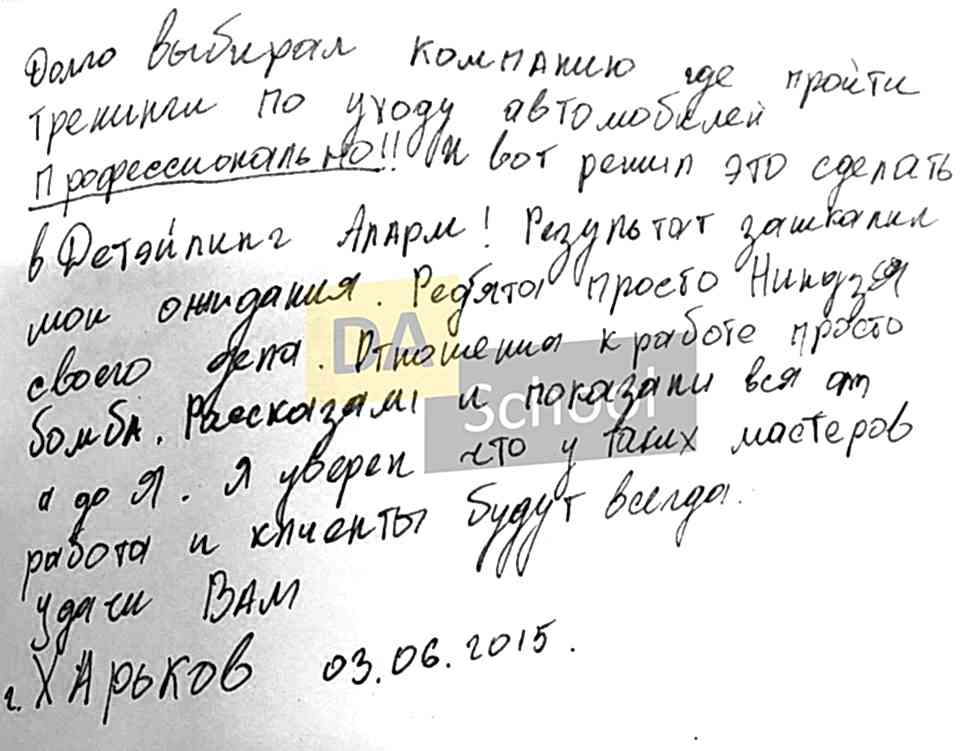 Долго выбирал компанию где пройти
тренинги по уходу автомобилей
Профессионально!! И вот решил это сделать
в Детэйлинг Аларм! Результат зашкалил
мои ожидания. Ребята просто Ниндзя
DA
своего дела. Отношения к работе просто
School
бомба. Рассказали и показали вся от
а до Я. Я уверен что у таких мастеров
работа и клиенты будут всегда.
удачи ВАМ
г. ХАрьков 03.06.2015.